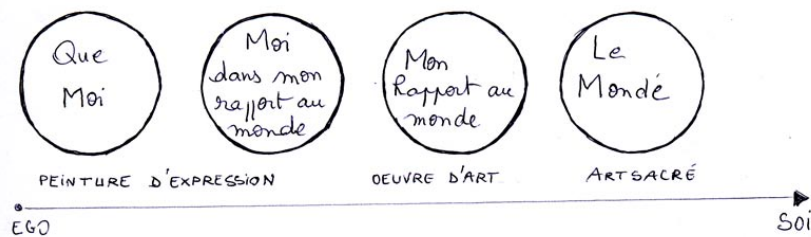 Que
Moi
Moi
dans mon
rapport au
monde
Mon
Rapport au
monde
Le
Mondé
PEINTURE D'EXPRESSION
OEUVRE D'ART
ART SACRÉ
EGO
SOI